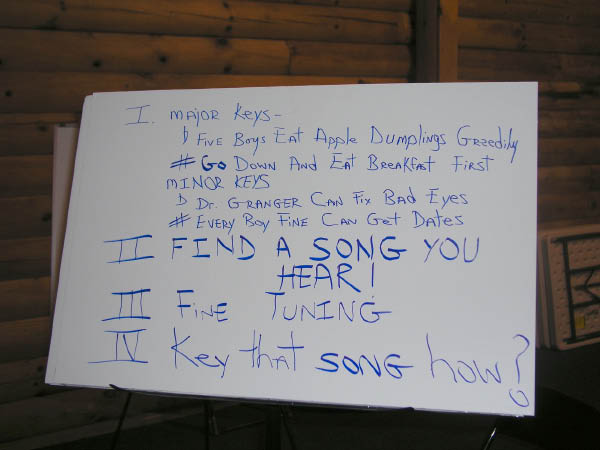 I. MAJOR KEYS-
♭ FIVE BOYS EAT APPLE DUMPLINGS GREEDILY
# GO DOWN AND EAT BREAKFAST FIRST
MINOR KEYS
♭ DR. GRANGER CAN FIX BAD EYES
# EVERY BOY FINE CAN GET DATES
II FIND A SONG YOU
HEAR!
III FINE TUNING
IV Key that SONG how?